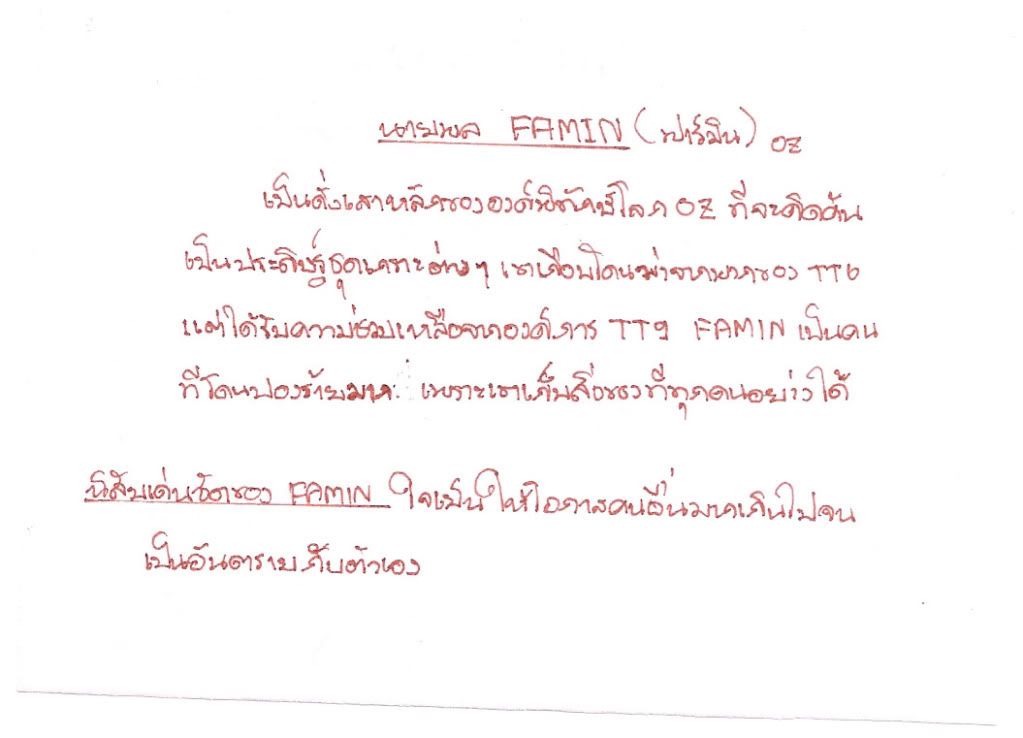 นายพล FAMIN (ฟาร์มิน) OZ
เป็นดั่งเสาหลักขององค์พิทักษ์โลก OZ ที่จะคิดค้น
เป็นประดิษฐ์ชุดเกราะต่างๆ เขาเกือบโดนฆ่าจาก
แต่ได้รับความช่วยเหลือจากองค์การ TT9 FAMIN เป็นคน
ที่โดนปองร้ายมาก เพราะเขาเก็บสิ่งของที่ทุกคนอยากได้
นิสัยเด่นชัดของ FAMIN ใจเย็น ให้โอกาสคนอื่นมากเกินไปจน
เป็นอันตรายกับตัวเอง